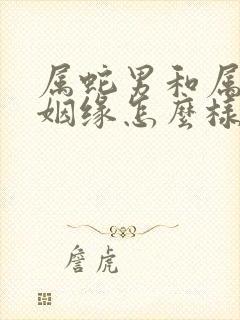 属蛇男和属
姻缘怎麼樣
詹虎